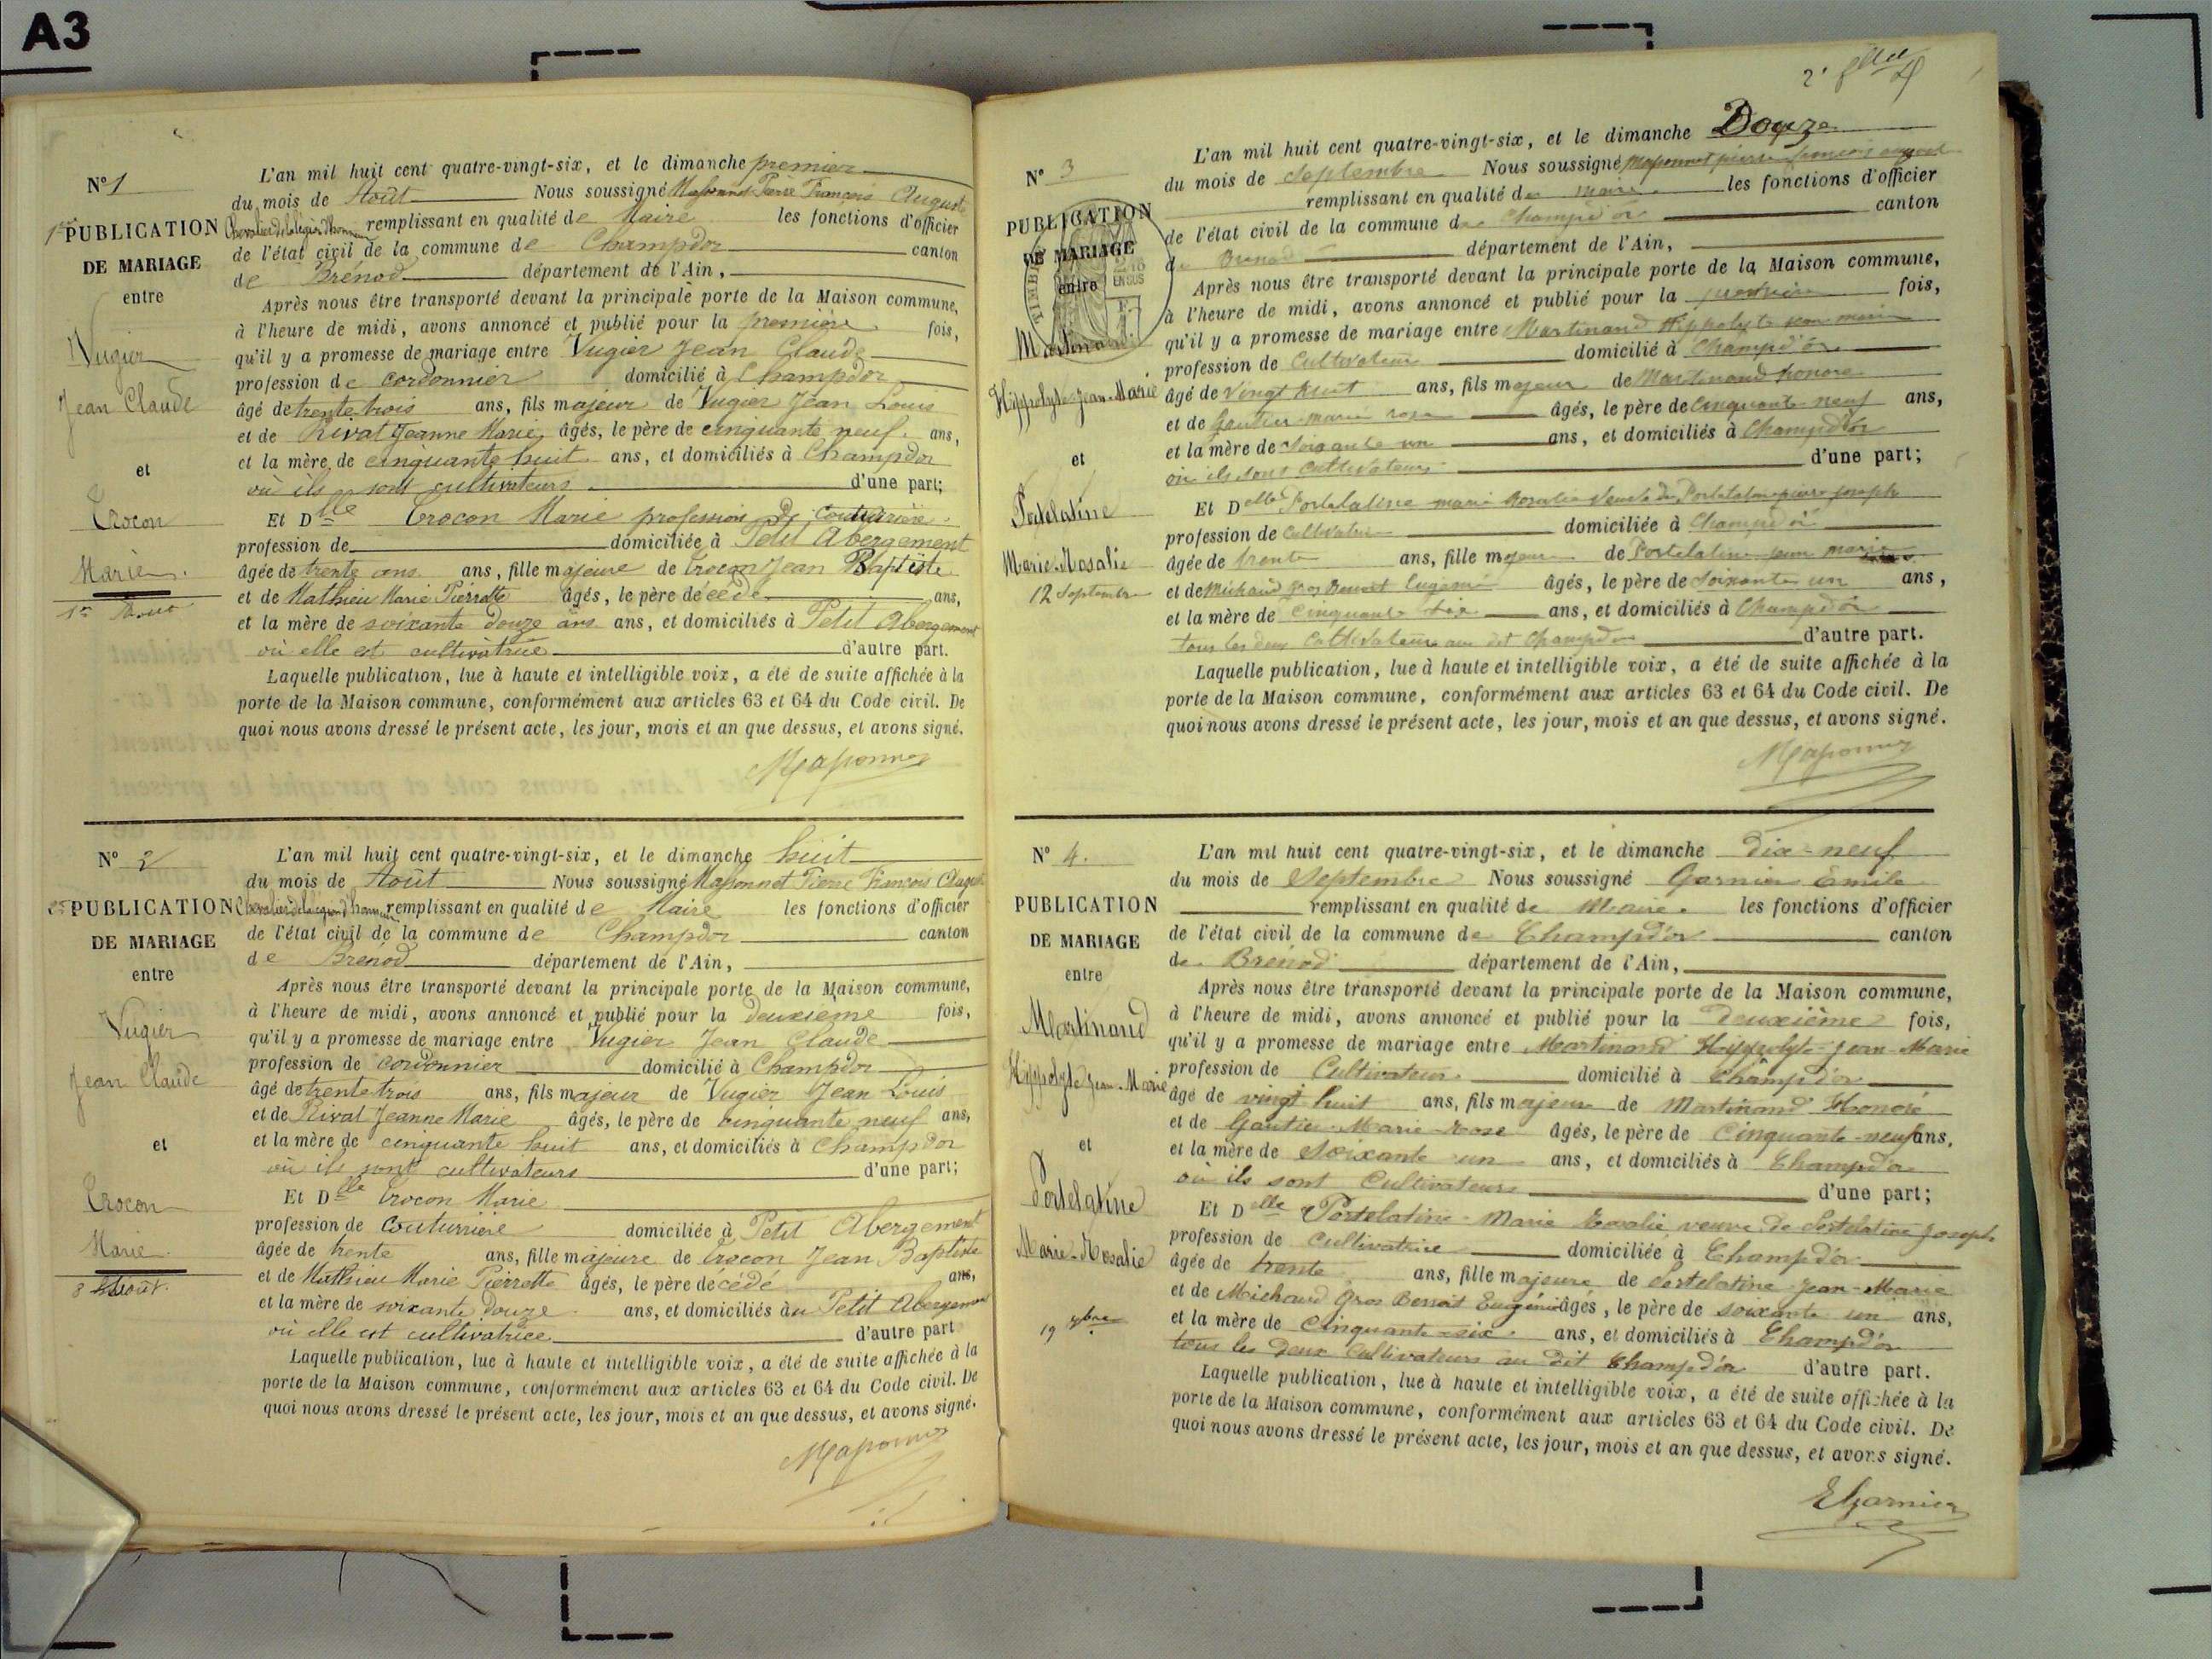 A3
N° 1
1ère PUBLICATION
DE MARIAGE
entre
Vugier
Jean Claude
et
Trocon
Marie.
1er Aout
L'an mil huit cent quatre-vingt-six, et le dimanche premier
du mois de Août Nous soussigné Massonnet Pierre François Auguste
Chevalier de la légion d'honneur remplissant en qualité de Maire les fonctions d'officier
de l'état civil de la commune de Champdor canton
de Brénod département de l'Ain,
Après nous être transporté devant la principale porte de la Maison commune,
à l'heure de midi, avons annoncé et publié pour la première fois,
qu'il y a promesse de mariage entre Vugier Jean Claude
profession de cordonnier domicilié à Champdor
âgé de trente trois ans, fils majeur de Vugier Jean Louis
et de Rivat Jeanne Marie, âgés, le père de cinquante neuf. ans,
et la mère de cinquante huit ans, et domiciliés à Champdor
où ils sont cultivateurs d'une part;
Et Dlle Trocon Marie profession de couturière
profession de domiciliée à Petit Abergement
âgée de trente ans ans, fille majeure de Trocon Jean Baptiste
et de Mathieu Marie Pierrette âgés, le père décédé ans,
et la mère de soixante douze ans ans, et domiciliés à Petit Abergement
où elle est cultivatrice d'autre part.
Laquelle publication, lue à haute et intelligible voix, a été de suite affichée à la
porte de la Maison commune, conformément aux articles 63 et 64 du Code civil. De
quoi nous avons dressé le présent acte, les jour, mois et an que dessus, et avons signé.
Massonnet
N° 2
2e PUBLICATION
DE MARIAGE
entre
Vugier
Jean Claude
et
Trocon
Marie.
8 Août.
L'an mil huit cent quatre-vingt-six, et le dimanche huit
du mois de Août Nous soussigné Massonnet Pierre François Auguste
Chevalier de la légion d'honneur remplissant en qualité de Maire les fonctions d'officier
de l'état civil de la commune de Champdor canton
de Brénod département de l'Ain,
Après nous être transporté devant la principale porte de la Maison commune,
à l'heure de midi, avons annoncé et publié pour la deuxième fois,
qu'il y a promesse de mariage entre Vugier Jean Claude
profession de cordonnier domicilié à Champdor
âgé de trente trois ans, fils majeur de Vugier Jean Louis
et de Rivat Jeanne Marie âgés, le père de cinquante neuf ans,
et la mère de cinquante huit ans, et domiciliés à Champdor
où ils sont cultivateurs d'une part;
Et Dlle Trocon Marie
profession de couturriere domiciliée à Petit Abergement
âgée de trente ans, fille majeure de Trocon Jean Baptiste
et de Mathieu Marie Pierrette âgés, le père décédé ans,
et la mère de soixante douze. ans, et domiciliés au Petit Abergement
où elle est cultivatrice d'autre part
Laquelle publication, lue à haute et intelligible voix, a été de suite affichée à la
porte de la Maison commune, conformément aux articles 63 et 64 du Code civil. De
quoi nous avons dressé le présent acte, les jour, mois et an que dessus, et avons signé.
Massonnet
N° 3
PUBLICATION
DE MARIAGE
entre
Martinand
Hippolyte Jean-Marie
et
Portelatine
Marie-Rosalie
12 Septembre
L'an mil huit cent quatre-vingt-six, et le dimanche Douze
du mois de Septembre Nous soussigné Massonnet pierre françois august
remplissant en qualité de maire les fonctions d'officier
de l'état civil de la commune de Champd'or canton
de Brenod département de l'Ain,
Après nous être transporté devant la principale porte de la Maison commune,
à l'heure de midi, avons annoncé et publié pour la première fois,
qu'il y a promesse de mariage entre Martinand Hippolyte jean marie
profession de Cultivateur domicilié à Champd'or
âgé de Vingt huit ans, fils majeur de Martinand honoré
et de Gautier marie rose âgés, le père de Cinquante neuf ans,
et la mère de Soixante un ans, et domiciliés à Champd'or
où ils sont Cultivateurs d'une part;
Et Delle Portelatine marie Rosalie Veuve de Portelatine pierre joseph
profession de Cultivatrice domiciliée à Champd'or
âgée de trente ans, fille majeure de Portelatine jean marie
et de Michaud Gros Benoit Eugénie âgés, le père de Soixante un ans,
et la mère de Cinquante six ans, et domiciliés à Champd'or
tous les deux Cultivateurs au dit Champdor d'autre part.
Laquelle publication, lue à haute et intelligible voix, a été de suite affichée à la
porte de la Maison commune, conformément aux articles 63 et 64 du Code civil. De
quoi nous avons dressé le présent acte, les jour, mois et an que dessus, et avons signé.
Massonnet
N° 4.
PUBLICATION
DE MARIAGE
entre
Martinand
Hippolyte Jean-Marie
et
Portelatine
Marie-Rosalie
19 7bre
L'an mil huit cent quatre-vingt-six, et le dimanche dix-neuf
du mois de Septembre Nous soussigné Garnier Emile
remplissant en qualité de Maire. les fonctions d'officier
de l'état civil de la commune de Champd'or canton
de Brénod département de l'Ain,
Après nous être transporté devant la principale porte de la Maison commune,
à l'heure de midi, avons annoncé et publié pour la Deuxième fois,
qu'il y a promesse de mariage entre Martinand Hippolyte Jean-Marie
profession de Cultivateur domicilié à Champd'or
âgé de vingt huit ans, fils majeur de Martinand Honoré
et de Gautier Marie-Rose âgés, le père de Cinquante-neuf ans,
et la mère de Soixante un ans, et domiciliés à Champd'or
où ils sont Cultivateurs d'une part;
Et Delle Portelatine Marie Rosalie veuve de Portelatine Joseph
profession de Cultivatrice domiciliée à Champd'or
âgée de trente ans, fille majeure de Portelatine Jean-Marie
et de Michaud Gros Benoit Eugénie âgés, le père de soixante un ans,
et la mère de Cinquante-six. ans, et domiciliés à Champd'or
tous les deux Cultivateurs au dit Champd'or d'autre part.
Laquelle publication, lue à haute et intelligible voix, a été de suite affichée à la
porte de la Maison commune, conformément aux articles 63 et 64 du Code civil. De
quoi nous avons dressé le présent acte, les jour, mois et an que dessus, et avons signé.
EGarnier